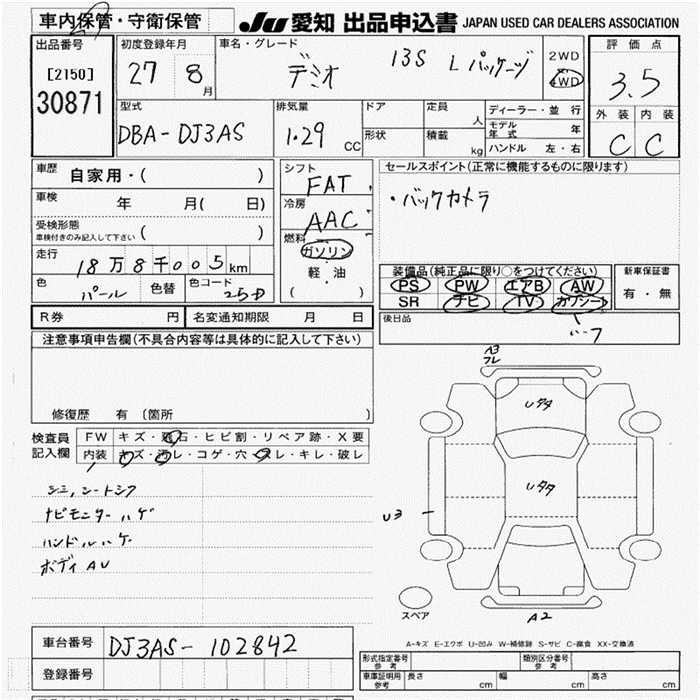 車内保管・守衛保管
JU 愛知 出品申込書 JAPAN USED CAR DEALERS ASSOCIATION
出品番号
[2150]
30871
初度登録年月
27 8月
車名・グレード
デミオ 13S Lパッケージ
2WD
4WD
評価点
3.5
外装 内装
C C
型式
DBA-DJ3AS
排気量
1.29 CC
ドア
形状
定員 人
積載 kg
ディーラー・並行
モデル年式 年
ハンドル 左・右
車歴
自家用・( )
車検 年 月( 日)
受検形態
車検付きのみ記入して下さい ( )
走行
18万8千005km
色 パール 色替 色コード 25D
シフト
FAT
冷房
AAC
燃料
ガソリン
軽・油
( )
セールスポイント(正常に機能するものに限ります)
・バックカメラ
装備品(純正品に限り○をつけてください)
PS PW エアB AW
SR ナビ TV カワシート
新車保証書
有・無
後日品
R券 円 名変通知期限 月 日
注意事項申告欄(不具合内容等は具体的に記入して下さい)
修復歴 有 (箇所 )
検査員記入欄
FW キズ・飛石・ヒビ割・リペア跡・X要
内装 キズ・汚レ・コゲ・穴・スレ・キレ・破レ
シミ,シートシワ
ナビモニターハゲ
ハンドルハゲ
ボディAU
A3
フレ
Uタタ
Uタタ
U3
A2
スペア
A-キズ E-エクボ U-凹み W-補修跡 S-サビ C-腐食 XX-交換済
車台番号 DJ3AS-102842
登録番号
形式指定番号 参考
類別区分番号 参考
車庫証明用 参考 長さ cm 幅 cm 高さ cm